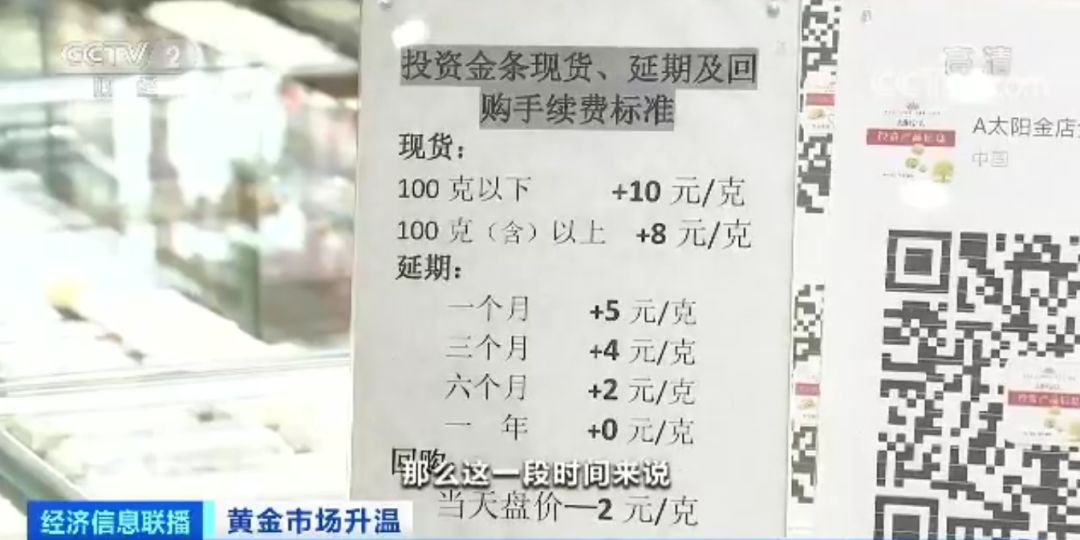 CCTV 2
财经
高清
投资金条现货、延期及回
购手续费标准
现货：
100 克以下 +10 元/克
100 克（含）以上 +8 元/克
延期：
一个月 +5 元/克
三个月 +4 元/克
六个月 +2 元/克
一 年 +0 元/克
回购
当天盘价—2 元/克
A太阳金店
中国
那么这一段时间来说
经济信息联播
黄金市场升温